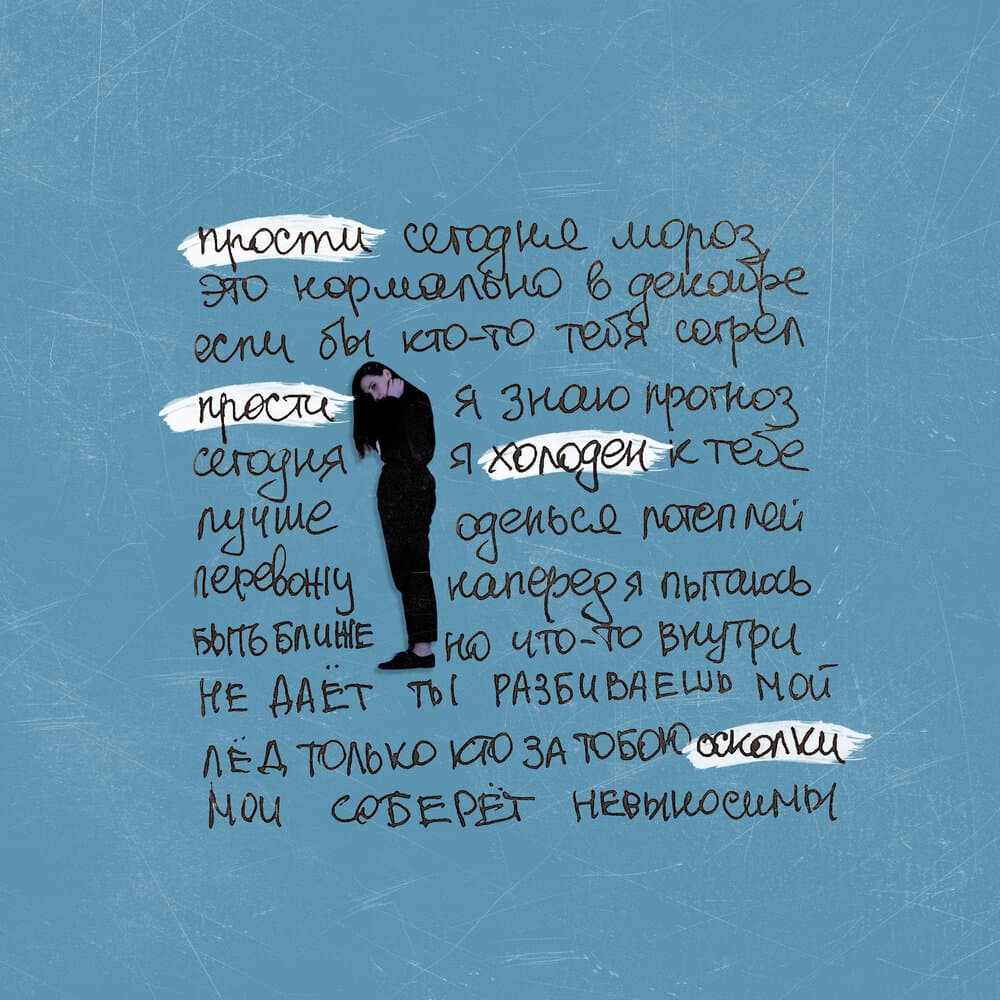 прости сегодня мороз
это нормально в декабре
если бы кто-то тебя согрел
прости я знаю прогноз
сегодня я холоден к тебе
лучше оденься потеплей
перевожу наперед я пытаюсь
быть ближе но что-то внутри
НЕ ДАЁТ ТЫ РАЗБИВАЕШЬ МОЙ
ЛЁД ТОЛЬКО КТО ЗА ТОБОЮ осколки
МОИ СОБЕРЁТ НЕВЫНОСИМЫ